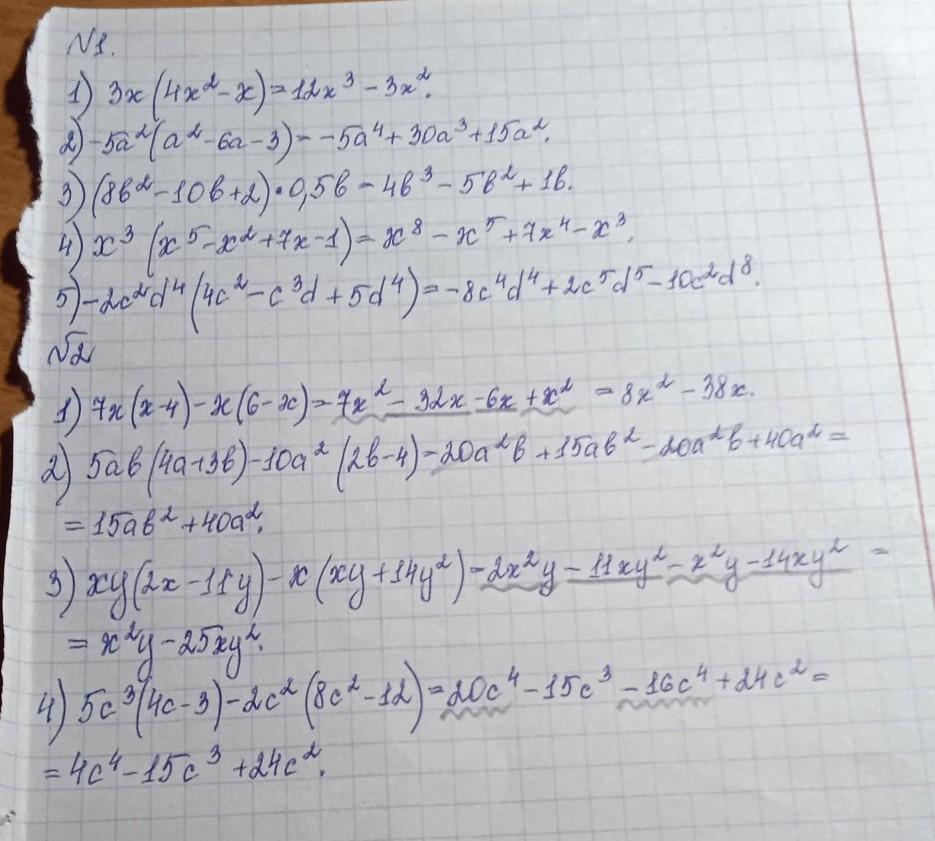 №1.
1) 3x(4x²-x)=12x³-3x².
2) -5a²(a²-6a-3)=-5a⁴+30a³+15a².
3) (8b²-10b+2)•0,5b=4b³-5b²+1b.
4) x³(x⁵-x²+7x-1)=x⁸-x⁵+7x⁴-x³.
5) -2c²d⁴(4c²-c³d+5d⁴)=-8c⁴d⁴+2c⁵d⁵-10c²d⁸.
№2
1) 7x(x-4)-x(6-x)=7x²-32x-6x+x²=8x²-38x.
2) 5ab(4a+3b)-10a²(2b-4)=20a²b+15ab²-20a²b+40a²=
=15ab²+40a².
3) xy(2x-11y)-x(xy+14y²)=2x²y-11xy²-x²y-14xy²=
=x²y-25xy².
4) 5c³(4c-3)-2c²(8c²-12)=20c⁴-15c³-16c⁴+24c²=
=4c⁴-15c³+24c².